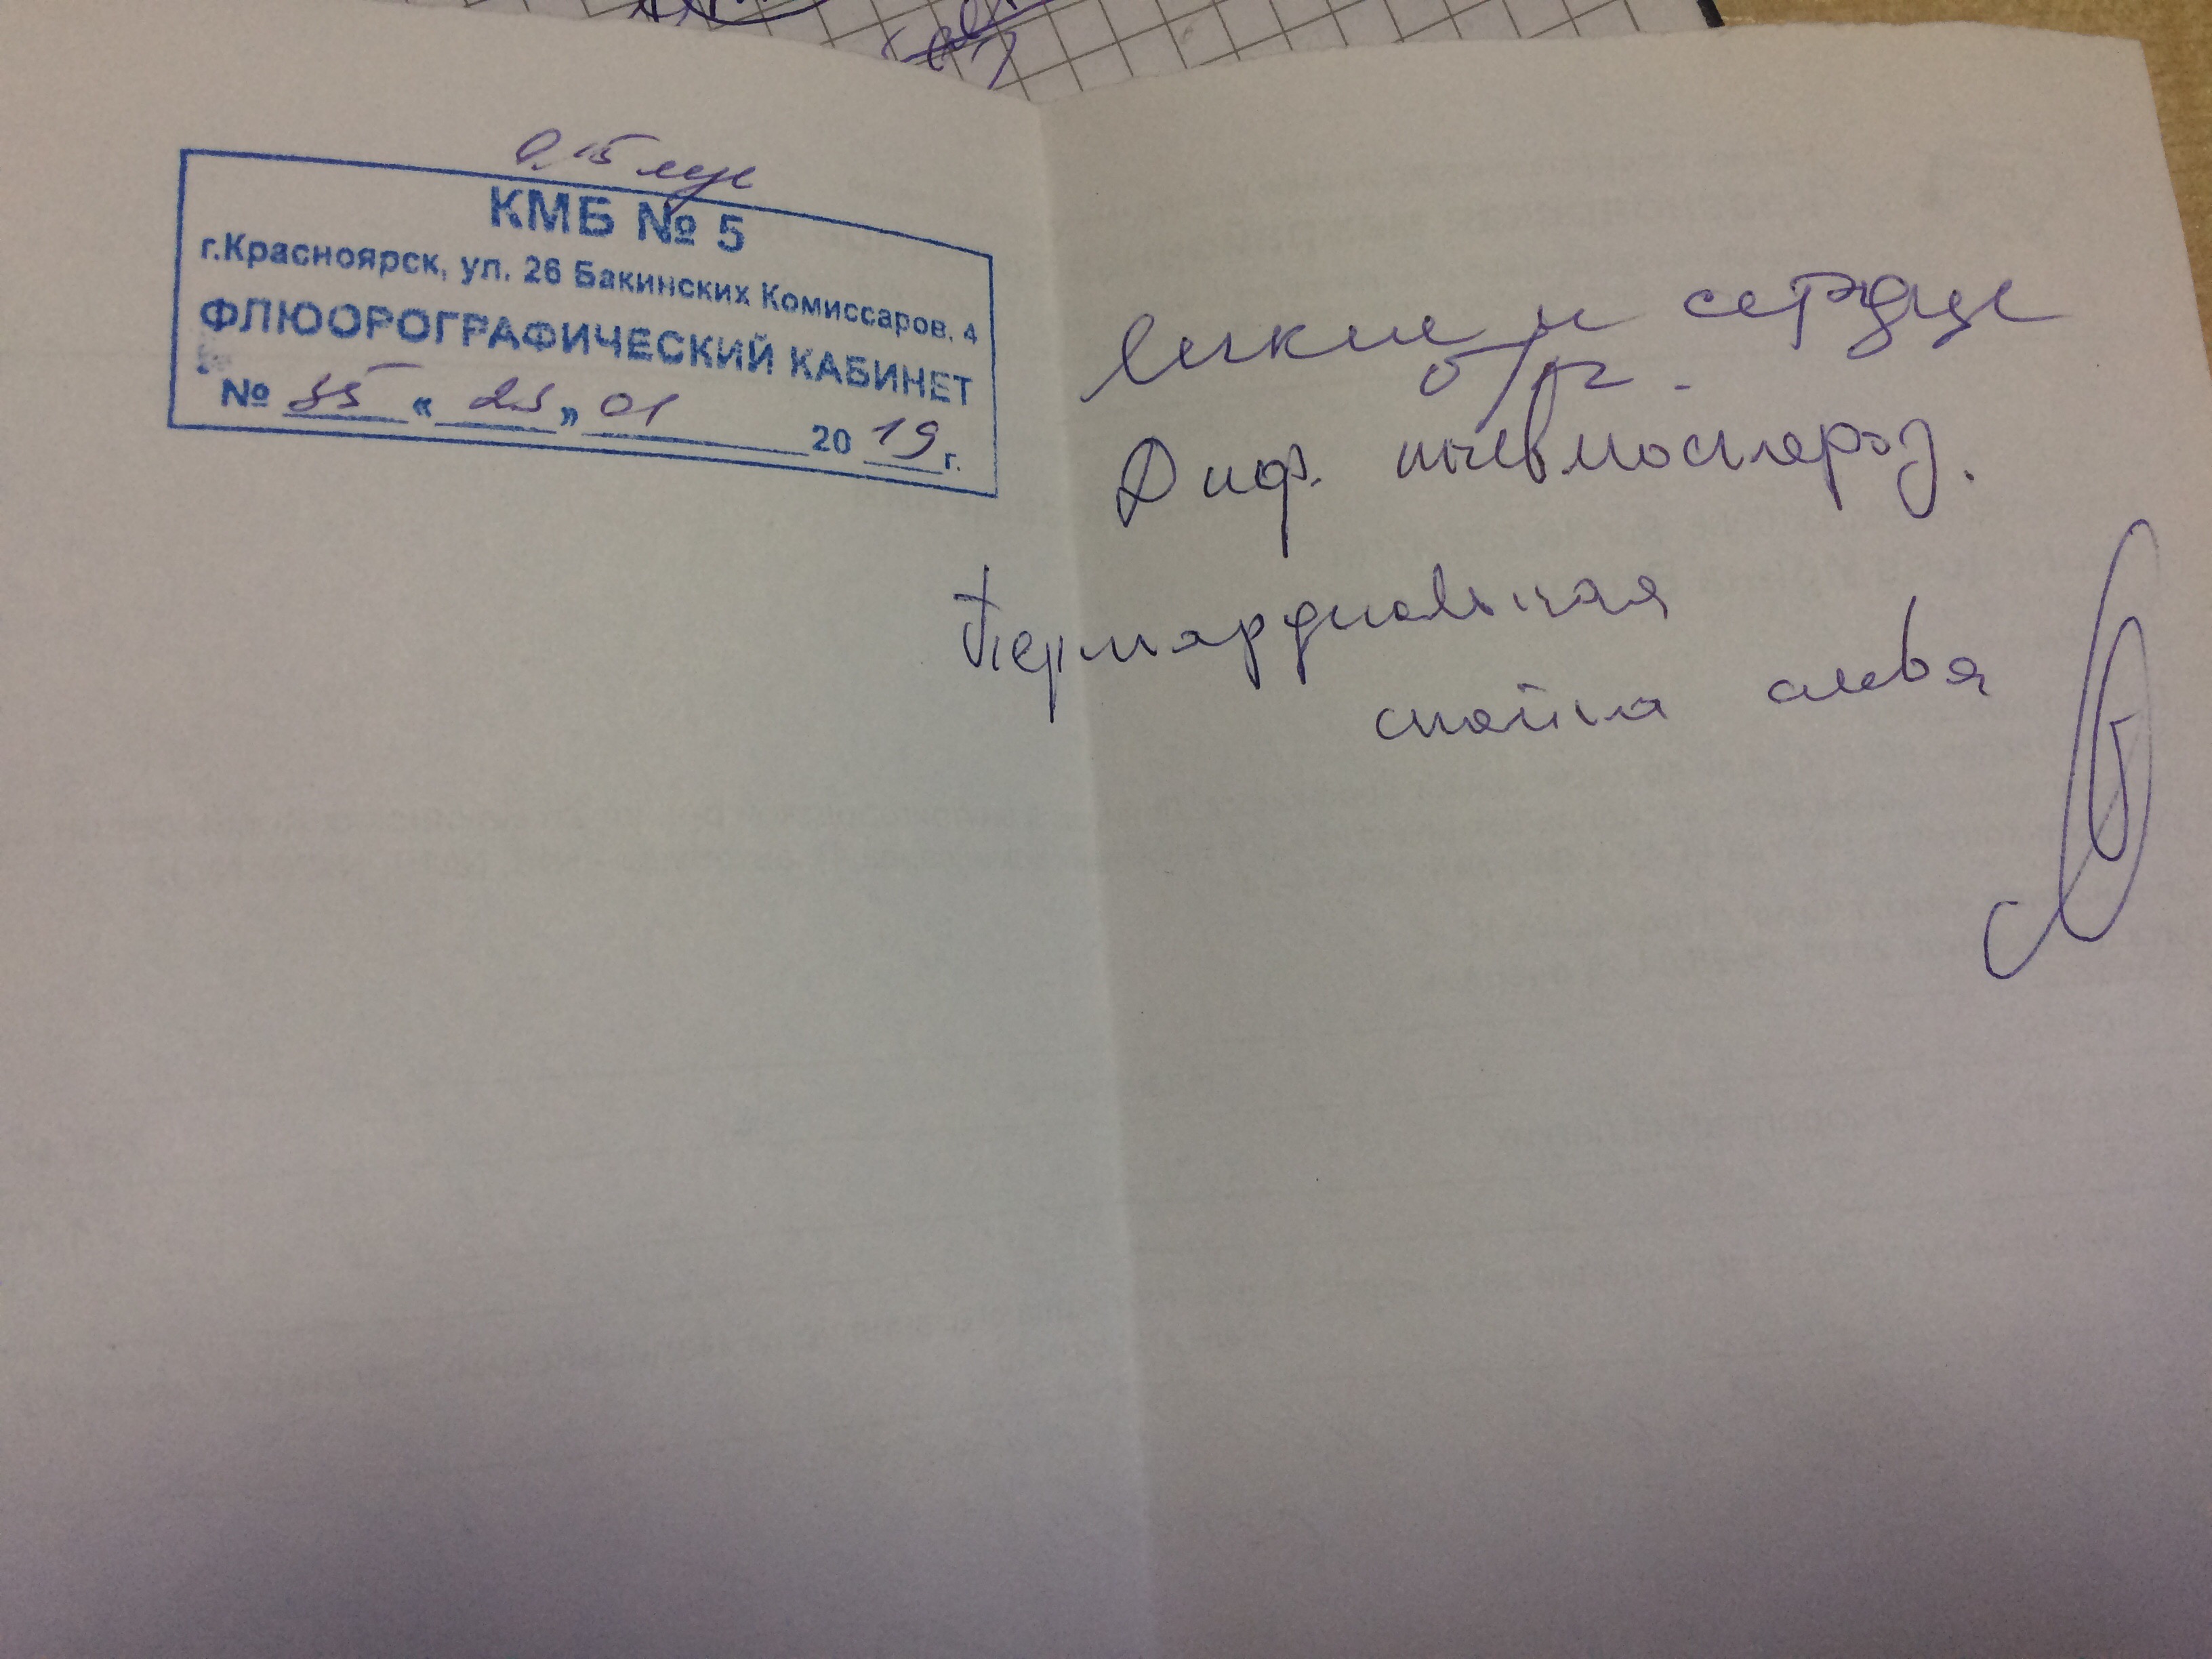 0,15 мзв
КМБ № 5
г.Красноярск, ул. 26 Бакинских Комиссаров, 4
ФЛЮОРОГРАФИЧЕСКИЙ КАБИНЕТ
№ 55 « 23 » 01 2019 г.
Легкие и сердце
б/п.
Диф. пневмосклероз.
Перикардиальная
спайка слева